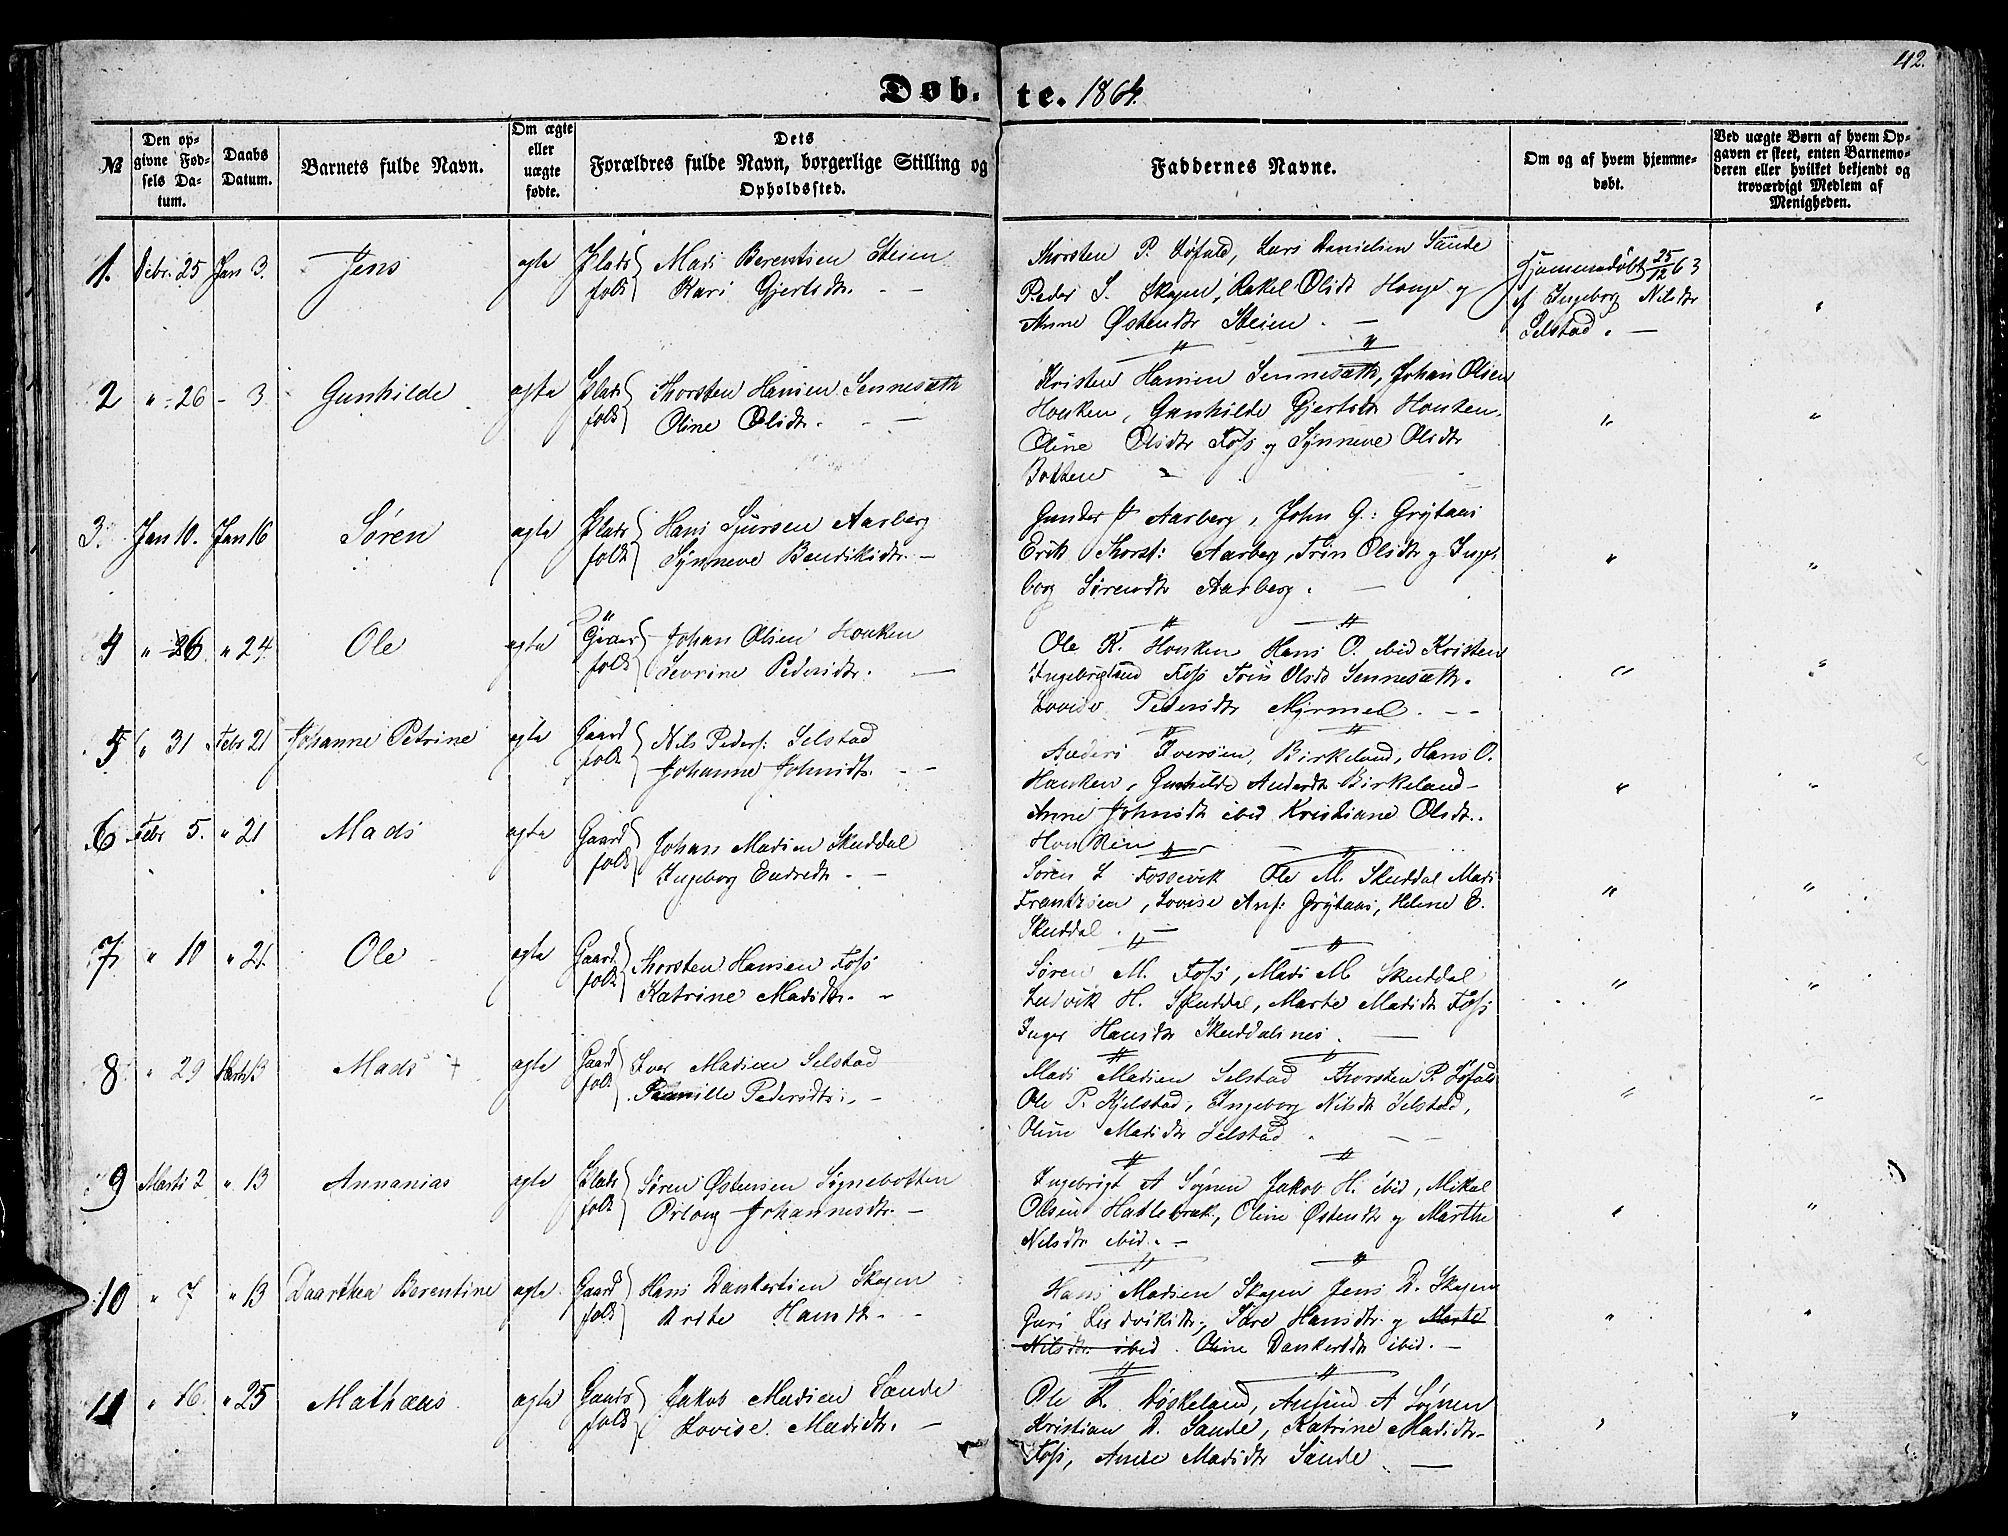 42.
Døb- te. 1864.
№
Den opgivne Fødsels Datum.
Daabs Datum.
Barnets fulde Navn.
Om ægte eller uægte fødte.
Dets Forældres fulde Navn, borgerlige Stilling og Opholdssted.
Faddernes Navne.
Om og af hvem hjemmedøbt.
Ved uægte Børn af hvem Opgaven er skeet, enten Barnemoderen eller hvilket bekjendt og troværdigt Medlem af Menigheden.
1. Debr. 25 Jan 3. Jens ægte Plads folk Mads Berentsen Steien
Kari Gjertsdtr. - -
Thorsten P. Løfald, Lars Danielsen Sande
Peder S. Skogen, Rakel Olsdt Houge og
Anne Østensdtr Steien. -
Hjemmedøbt 25/12 63
af Ingeborg Nilsdtr
Selstad. -
"
2 " 26 - 3. Gunhilde ægte Plads folk Thorsten Hansen Sennesæth
Oline Olsdtr. - -
Kristen Hansen Sennesæth, Johan Olsen
Houken, Gunhilde Gjertsdtr Houken.
Oline Olsdtr Foss og Synneve Olsdtr
Botten -
" "
3. Jan 10. Jan 16 Søren ægte Plads folk Hans Sjursen Aarberg
Synneve Bendiksdtr. -
Gunder J Aarberg, John G: Grytaas
Erik Thorst: Aarberg, Trin Olsdtr og Inge-
borg Sørensdtr Aarberg. -
" "
4 " 26. " 24. Ole ægte Gaard folk Johan Olsen Houken
Severine Pedersdtr. -
Ole K. Houken Hans O. ibid Kristen
Foss Trin Olsdt Sennesæth.
Lovise Pedersdtr Myrmel. - -
" "
5 " 31 Febr 21 Johanne Petrine ægte Gaard folk Nils Peders: Selstad
Johanne Johnsdtr. - -
Anders Iversen, Birkeland, Hans O.
Houken, Gunhilde Andersdtr Birkeland -
Anne Johnsdtr ibid Kristiane Olsdtr.
Houken
" "
6 Febr 5. " 21 Mads ægte Gaard folk Johan Madsen Skuddal
Ingeborg Endresdtr. -
Søren L Fossevik Ole M. Skuddal Mads
Frantzsen, Lovise Ans: Grytaas, Helene E.
Skuddal. -
" "
7 " 10 " 21. Ole ægte Gaard folk Thorsten Hansen Foss
Katrine Madsdtr. -
Søren M. Foss, Mads M. Skuddal
Ludvik H. Skuddal, Marte Madsdtr Foss
Inger Hansdtr Skuddalsnes. -
" "
8 " 29 Marts 13 Mads + ægte Gaard folk Iver Madsen Selstad
Pernille Pedersdtr. -
Mads Madsen Selstad Thorsten P. Løfald
Ole P. Kjelstad, Ingeborg Nilsdtr Selstad,
Oline Madsdtr Selstad. -
" "
9 Marts 2 " 13 Annanias ægte Plads folk Søren Østensen Søgnebotten
Orloug Johannesdtr. -
Ingebrigt A Søgnen Jakob H. ibid, Mikal
Olsen Hatlebræk, Oline Østensdtr og Marthe
Nilsdtr ibid. -
" "
10 " 7 " 13 Daarthea Berentine ægte Gaard folk Hans Dankertsen Skogen
Orite Hansdtr. -
Hans Madsen Skogen Jens D. Skogen
Guri Ludviksdtr, Sare Hansdtr. og Marte
Nilsdtr. ibid. Oline Dankertsdtr ibid. -
" "
11 " 16. " 25 Mathæus ægte Gaards folk Jakob Madsen Sande
Lovise Madsdtr. -
Ole K. Døskeland, Ansund A Søgnen
Kristian D. Sande, Katrine Madsdtr.
Foss, Anne Madsdtr Sande -
" "